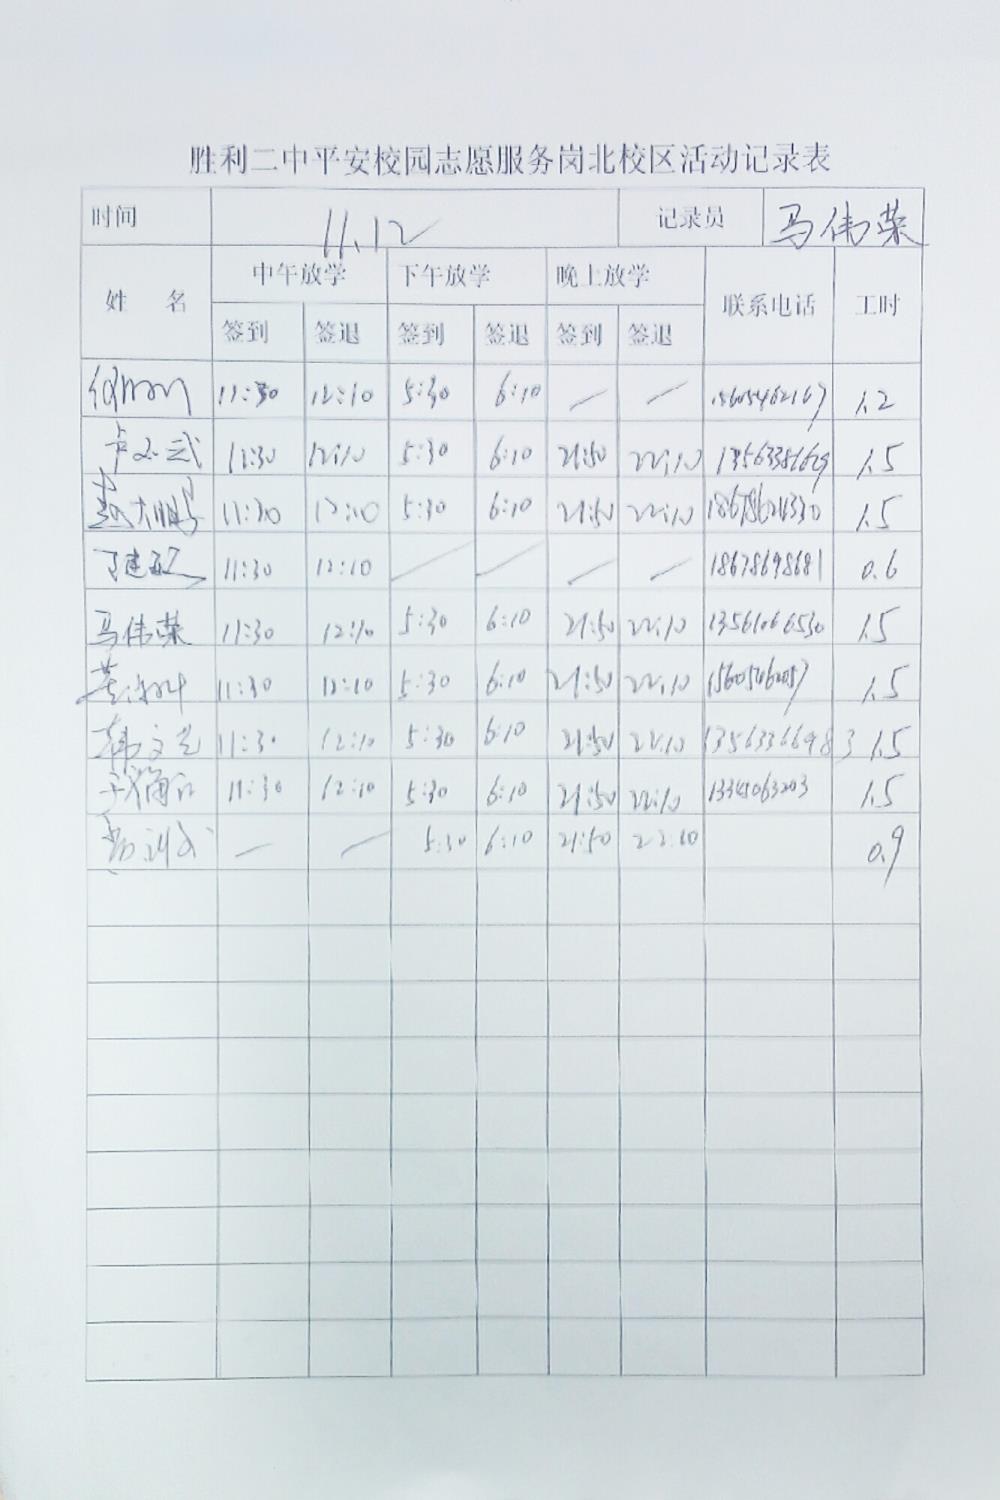 胜利二中平安校园志愿服务岗北校区活动记录表
时间 11.12 记录员 马伟荣
姓 名 中午放学 下午放学 晚上放学 联系电话 工时
签到 签退 签到 签退 签到 签退
11:30 12:10 5:30 6:10 — — 15605462167 1.2
11:30 12:10 5:30 6:10 21:50 22:10 1.5
11:30 12:10 5:30 6:10 21:50 22:10 1.5
11:30 12:10 — — — — 18678698681 0.6
马伟荣 11:30 12:10 5:30 6:10 21:50 22:10 13561066530 1.5
11:30 12:10 5:30 6:10 21:50 22:10 15605462057 1.5
韩文芝 11:30 12:10 5:30 6:10 21:50 22:10 13563366983 1.5
11:30 12:10 5:30 6:10 21:50 22:10 1.5
— — 5:30 6:10 21:50 22:10 0.9